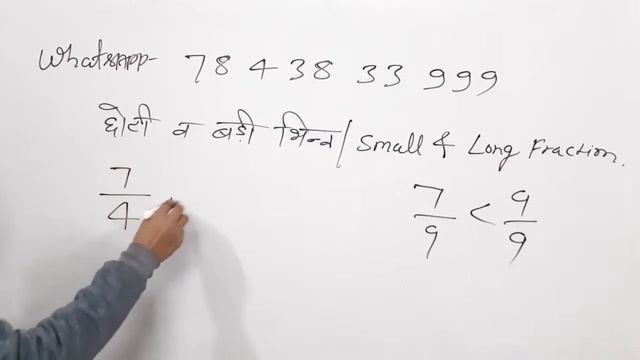 WhatsAPP- 78 438 33 999
छोटी व बड़ी भिन्न / Small & Long Fraction.
7/4
7/9 < 9/9